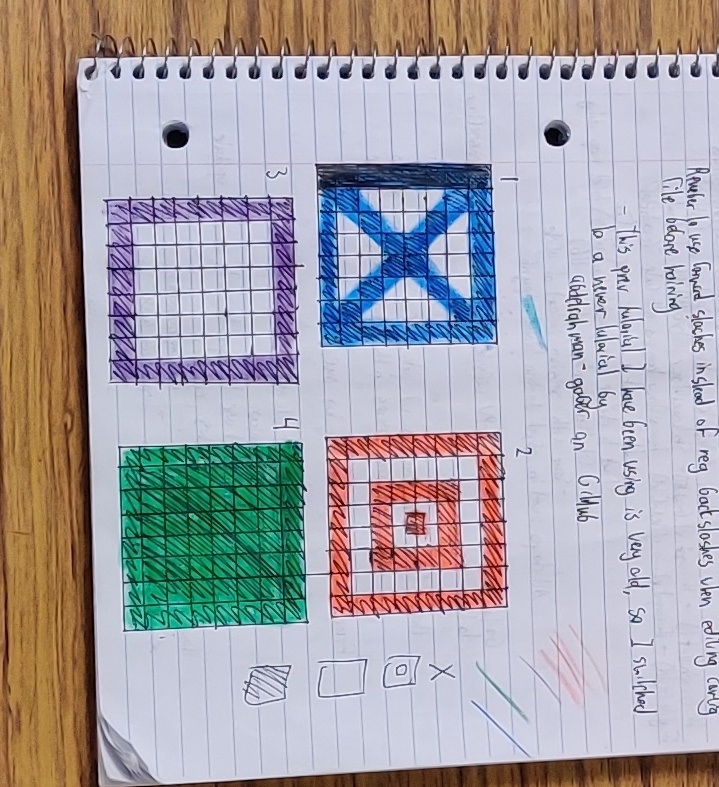 Remember to use forward slashes instead of reg backslashes when editing config
file before training
- This prev tutorial I have been using is very old, so I switched
to a newer tutorial by
abdelrahman-gaber on Github
1
2
3
4